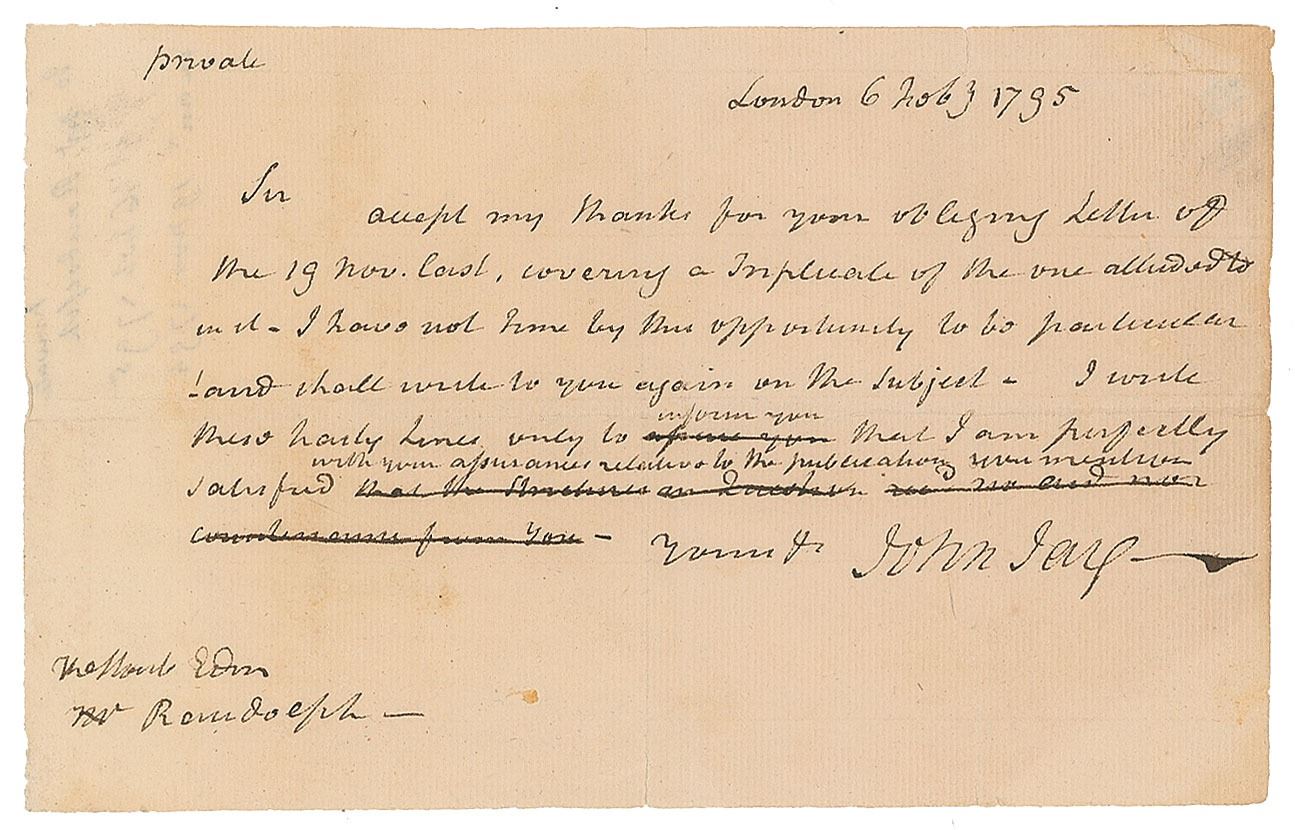 private
London 6 Feby 1795
Sir
accept my thanks for your obliging Letter of
the 19 Nov. last, covering a Triplicate of the one alluded to
in it - I have not time by this opportunity to be particular
and shall write to you again on the Subject - I write
these hasty Lines only to assure you that I am perfectly
inform you
satisfied that the Strictures in Question
with your assurances relative to the publication you mention
countenance from You -
Yours &c John Jay
The Honb Edm
Mr Randolph -